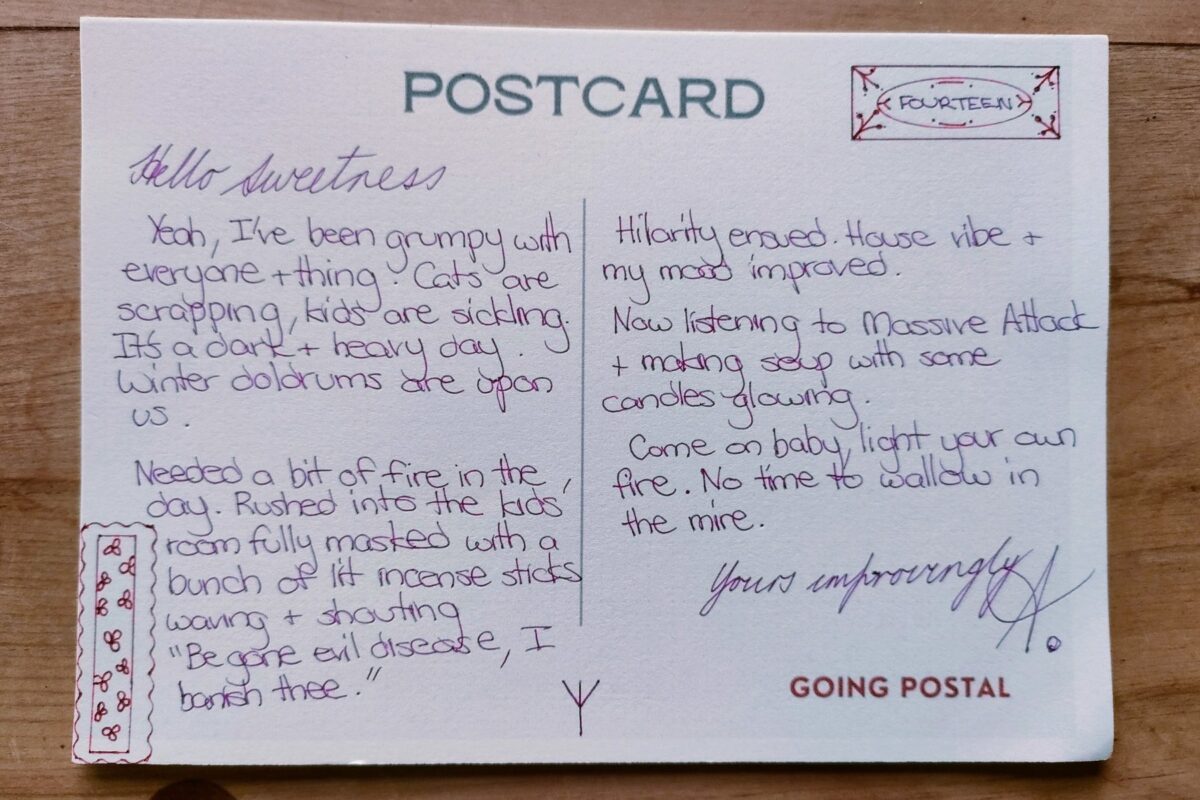 POSTCARD
FOURTEEN
Hello Sweetness
Yeah, I've been grumpy with
everyone + thing. Cats are
scrapping, kids are sickling.
It's a dark + heavy day.
Winter doldrums are upon
us.
Needed a bit of fire in the
day. Rushed into the kids'
room fully masked with a
bunch of lit incense sticks
waving + shouting
"Be gone evil disease, I
banish thee."
Hilarity ensued. House vibe +
my mood improved.
Now listening to Massive Attack
+ making soup with some
candles glowing.
Come on baby, light your own
fire. No time to wallow in
the mire.
Yours improvingly
A.
GOING POSTAL